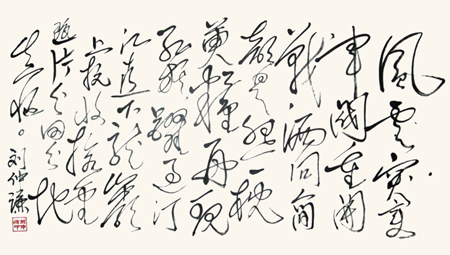 風雲突变
軍閥重開
戰洒向人間
都是怨一枕
黄粱再現
紅旗躍過汀
江直下龍巖
上杭收拾金
甌一片分田分地
真忙。刘仲谦